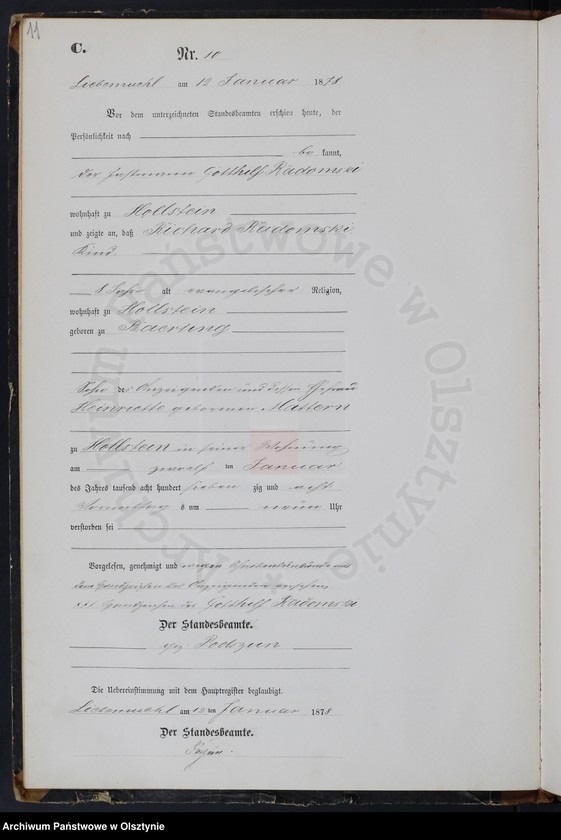 11
C.
Nr. 10
Liebemuehl am 12 Januar 1878
Vor dem unterzeichneten Standesbeamten erschien heute, der
Persönlichkeit nach
be kannt,
der Gotthelf Radomski
wohnhaft zu Hollstein
und zeigte an, daß Richard Radomski
Kind
8 Jahr alt evangelischer Religion,
wohnhaft zu Hollstein
geboren zu
Sohn des Anzeigenden und dessen Ehefrau
Heinriette geborenen Mattern
zu Hollstein in seiner Wohnung
am zwoelf ten Januar
des Jahres tausend acht hundert sieben zig und acht
Vormittag s um neun Uhr
verstorben sei
Vorgelesen, genehmigt und wegen mit
dem Handzeichen des Anzeigenden versehen
xxx Handzeichen des Gotthelf Radomski
Der Standesbeamte.
gez. Podszun
Die Uebereinstimmung mit dem Hauptregister beglaubigt.
Liebemuehl am 12 ten Januar 1878
Der Standesbeamte.
Archiwum Państwowe w Olsztynie
Archiwum Państwowe w Olsztynie